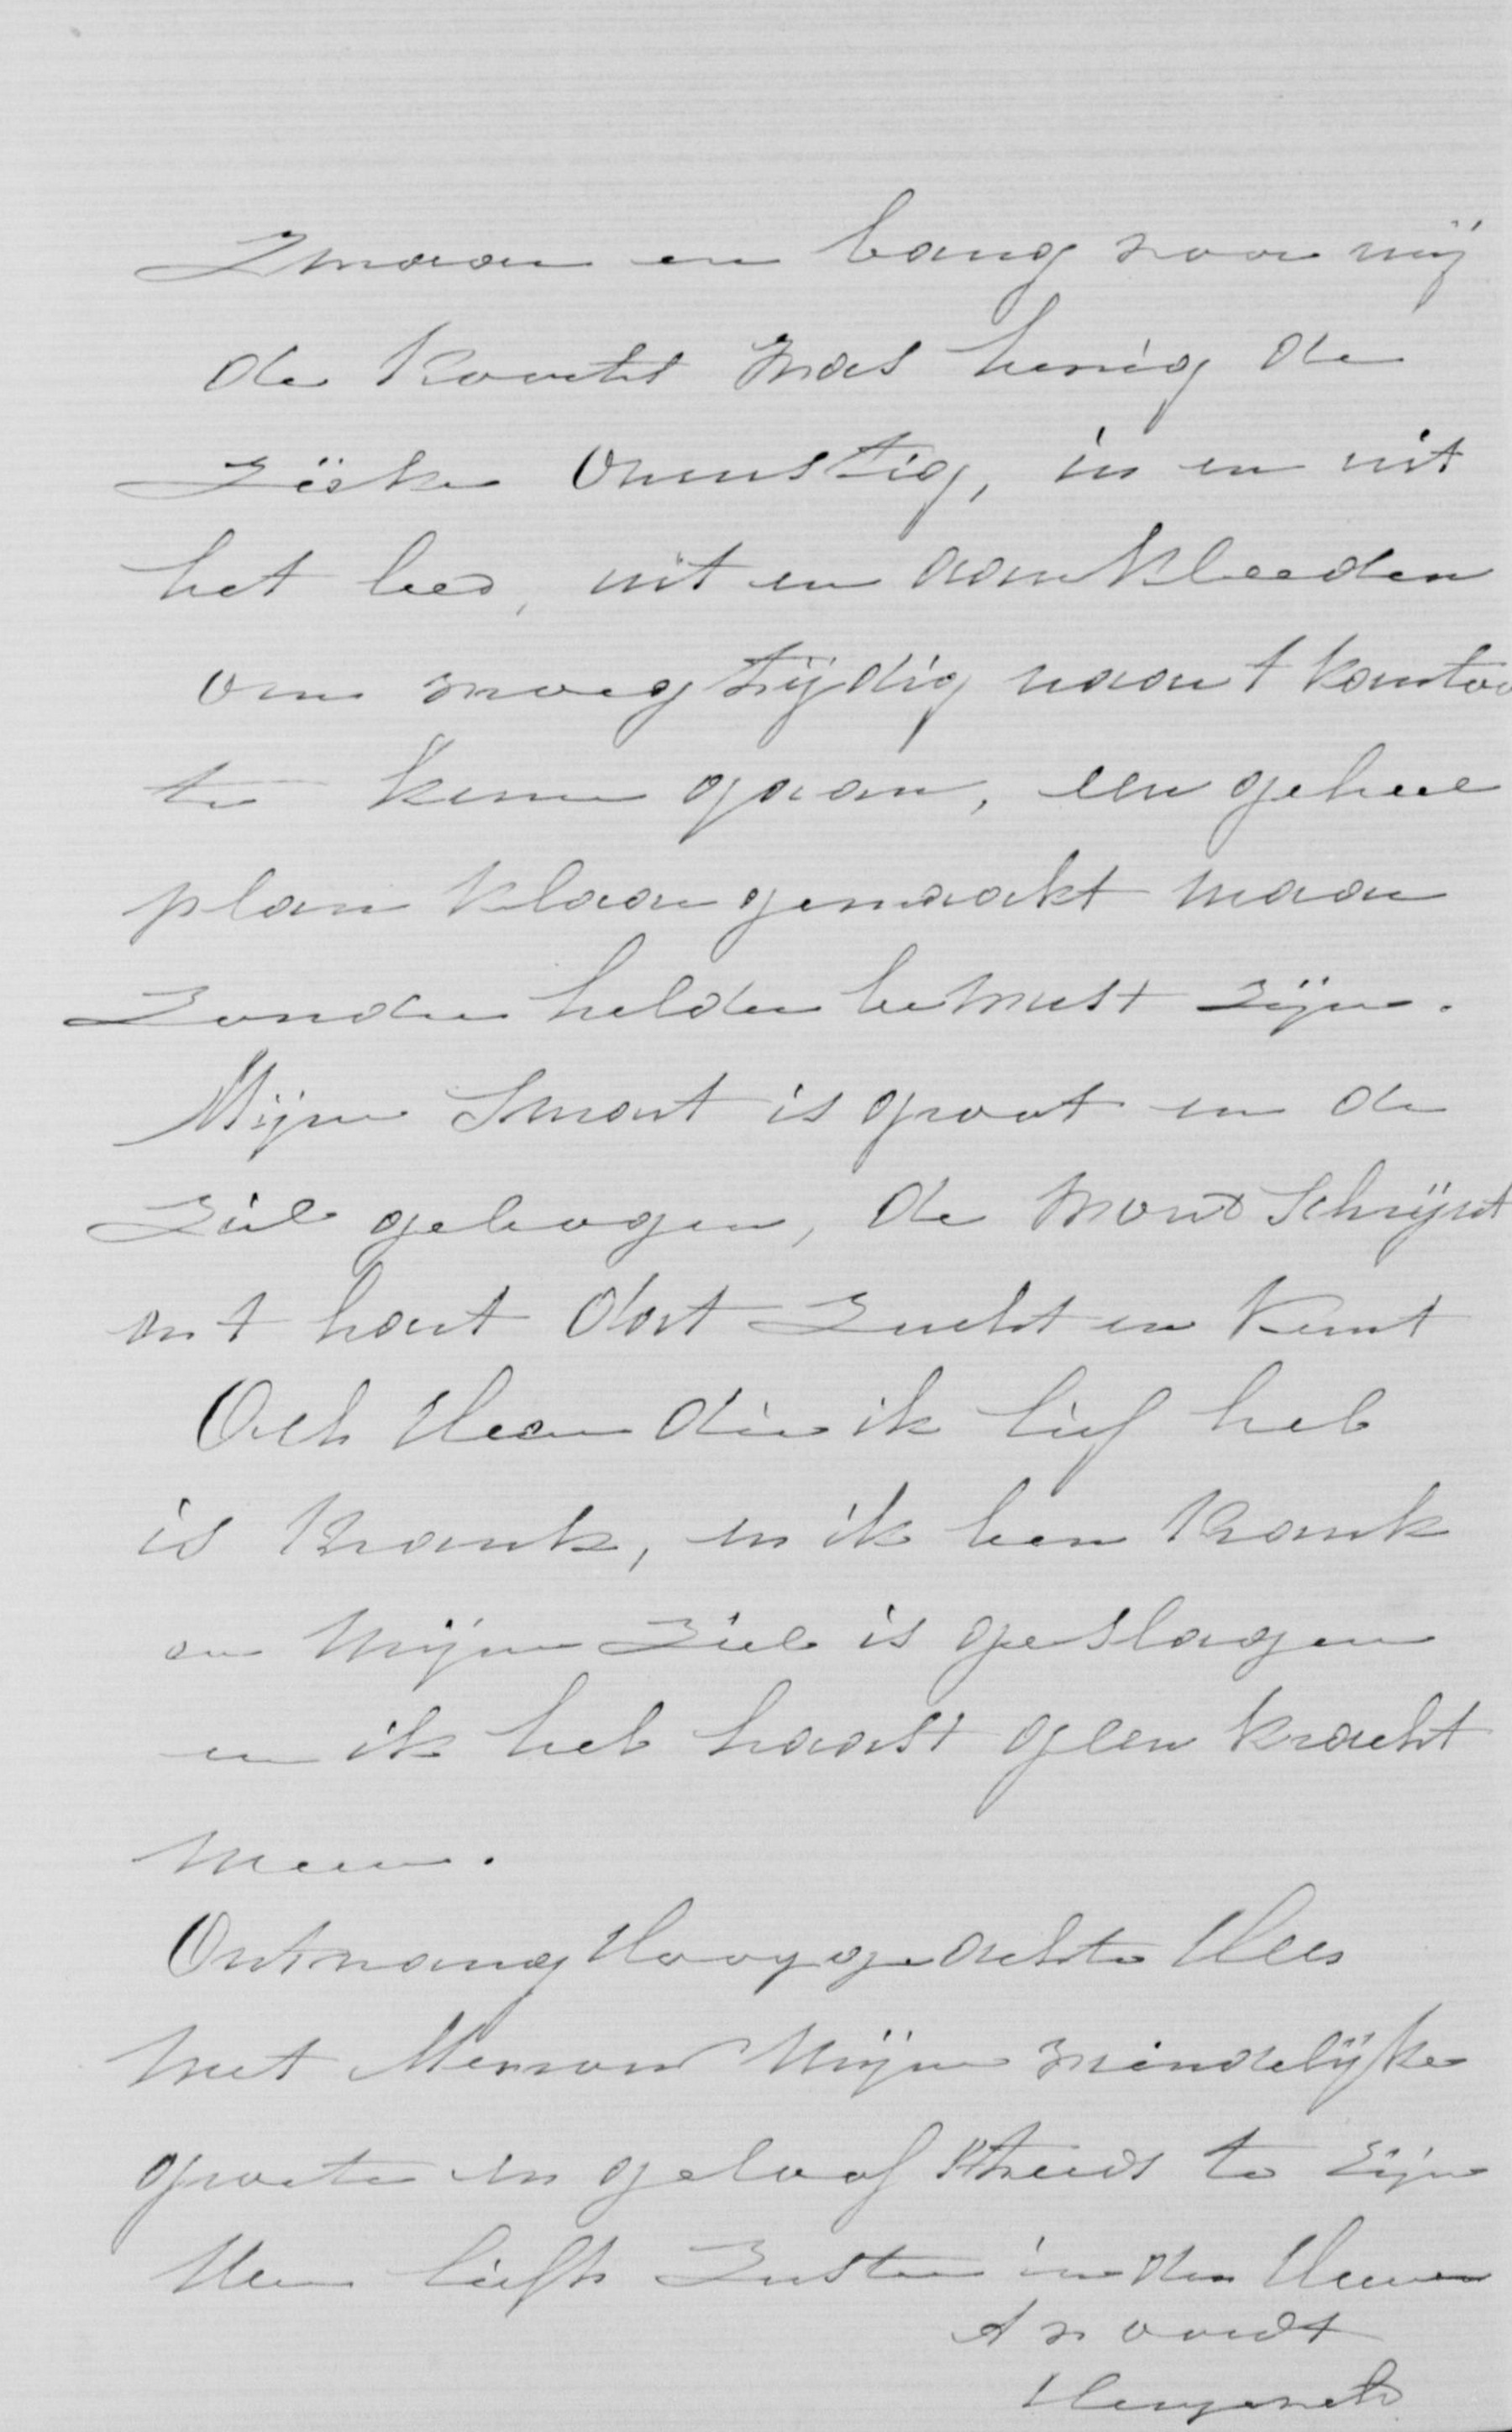 Zwaar en bang voor mij
de koorts was hevig de
zieke onrustig, in en uit
het bed, uit en aankleeden
om vroegtijdig naar t kantoo
te kunn gaan, een geheel
plan klaar gemaakt maar
zonder helder bewust zijn.
Mijne smart is groot en de
Ziel gebogen, de mond schrijnt
en t hart dat zucht en kermt
Och Heer die ik lief heb
is krank, en ik ben krank
en mijne Ziel is geslagen
en ik heb haast geen kracht
meer.
Ontvang Hooggeachte Heer
met Mevrouw mijne vriendelijke
groete en geloof steeds te zijn
Uw liefh Zuster in den Heere
A v